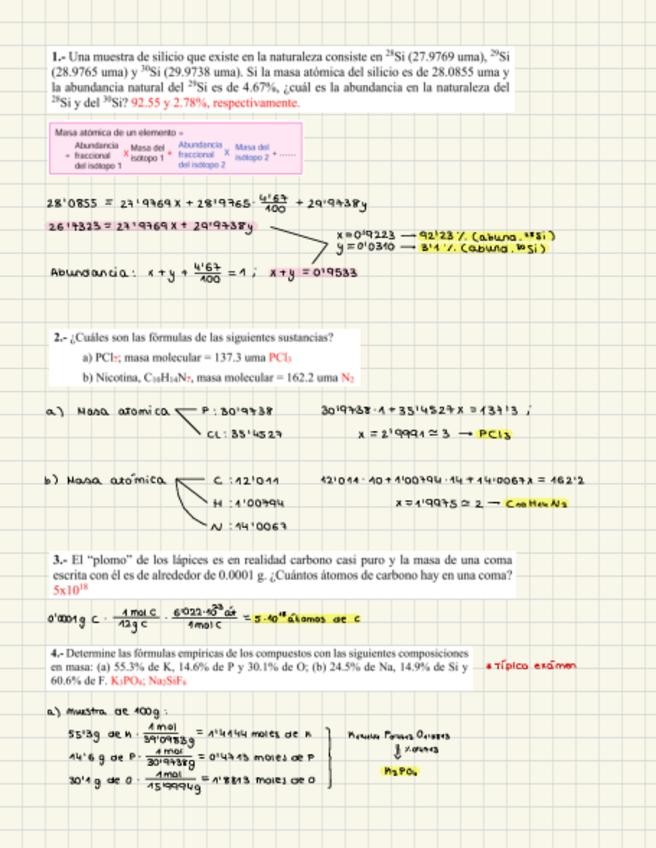 1.- Una muestra de silicio que existe en la naturaleza consiste en ²⁸Si (27.9769 uma), ²⁹Si
(28.9765 uma) y ³⁰Si (29.9738 uma). Si la masa atómica del silicio es de 28.0855 uma y
la abundancia natural del ²⁹Si es de 4.67%, ¿cuál es la abundancia en la naturaleza del
²⁸Si y del ³⁰Si? 92.55 y 2.78%, respectivamente.
Masa atómica de un elemento =
= Abundancia fraccional del isótopo 1 x Masa del isótopo 1 + Abundancia fraccional del isótopo 2 x Masa del isótopo 2 + ......
28'0855 = 27'9769x + 28'9765 · 4'67/100 + 29'9738y
26'7323 = 27'9769x + 29'9738y
x = 0'9223 → 92'23 % (abund. ²⁸Si)
y = 0'0310 → 3'1 % (abund. ³⁰Si)
Abundancia: x + y + 4'67/100 = 1 ; x + y = 0'9533
2.- ¿Cuáles son las fórmulas de las siguientes sustancias?
a) PCl?; masa molecular = 137.3 uma PCl₃
b) Nicotina, C₁₀H₁₄N?, masa molecular = 162.2 uma N₂
a) Masa atomica P: 30'9738 30'9738·1 + 35'4527x = 137'3 ;
CL: 35'4527 x = 2'9991 ≃ 3 → PCl₃
b) Masa atómica C: 12'011 12'011·10 + 1'00794·14 + 14'0067x = 162'2
H: 1'00794 x = 1'9975 ≃ 2 → C₁₀H₁₄N₂
N: 14'0067
3.- El “plomo” de los lápices es en realidad carbono casi puro y la masa de una coma
escrita con él es de alrededor de 0.0001 g. ¿Cuántos átomos de carbono hay en una coma?
5x10¹⁸
0'0001g C · 1 mol C/12g C · 6'022·10²³ át/1 mol C = 5·10¹⁸ átomos de C
4.- Determine las fórmulas empíricas de los compuestos con las siguientes composiciones
en masa: (a) 55.3% de K, 14.6% de P y 30.1% de O; (b) 24.5% de Na, 14.9% de Si y
60.6% de F. K₃PO₄; Na₂SiF₆
* Típico exámen
a) muestra de 100g:
55'3g de K · 1 mol/39'0983g = 1'4144 moles de K
14'6 g de P · 1 mol/30'9738g = 0'4713 moles de P
30'1 g de O · 1 mol/15'9994g = 1'8813 moles de O